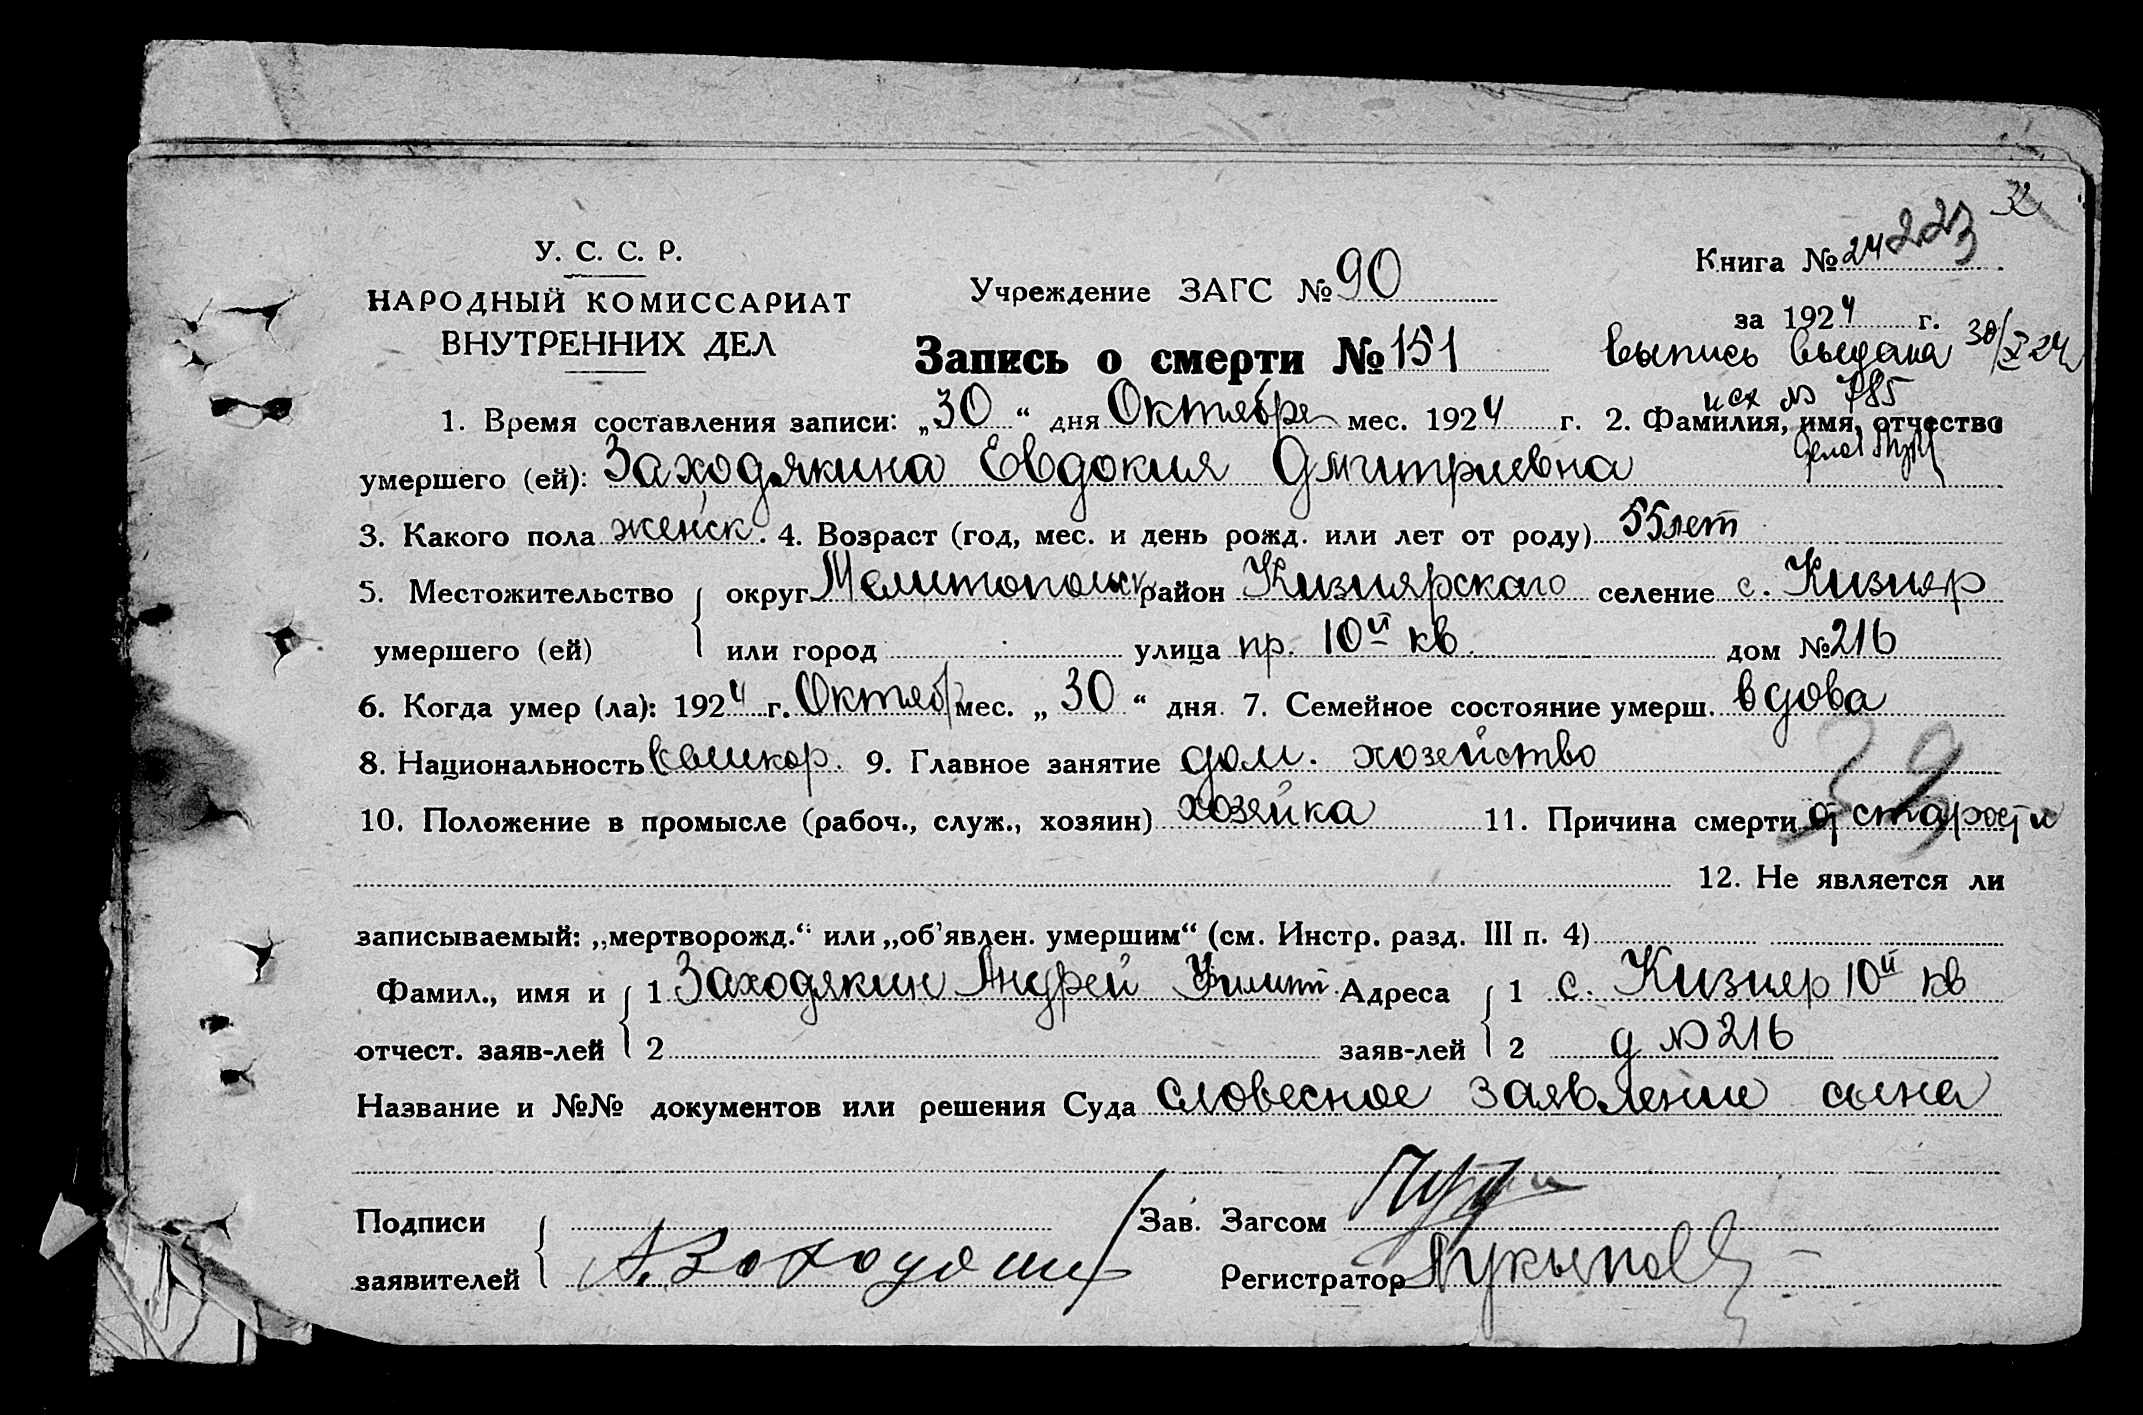 32
У. С. С. Р.
НАРОДНЫЙ КОМИССАРИАТ
ВНУТРЕННИХ ДЕЛ
Учреждение ЗАГС № 90
Книга № 24 223
за 1924 г.
Запись о смерти № 151
выпись выдана 30/X 24
исх № 785
1. Время составления записи: „30“ дня Октября мес. 1924 г. 2. Фамилия, имя, отчество
умершего (ей): Заходякина Евдокия Дмитриевна
3. Какого пола женск. 4. Возраст (год, мес. и день рожд. или лет от роду) 55 лет
5. Местожительство округ Мелитопольск район Кизиярского селение с. Кизияр
умершего (ей) или город улица пр. 10й кв дом № 216
6. Когда умер (ла): 1924 г. Октябр мес. „30“ дня. 7. Семейное состояние умерш. вдова
8. Национальность великор. 9. Главное занятие дом. хозейство
39
10. Положение в промысле (рабоч., служ., хозяин) хозяйка 11. Причина смерти от старости
12. Не является ли
записываемый: „мертворожд.“ или „об'явлен. умершим“ (см. Инстр. разд. III п. 4)
Фамил., имя и 1 Заходякин Андрей Филип. Адреса 1 с. Кизияр 10й кв
отчест. заяв-лей 2 заяв-лей 2 д № 216
Название и №№ документов или решения Суда словесное заявление сына
Подписи Зав. Загсом
заявителей А. Заходякин Регистратор